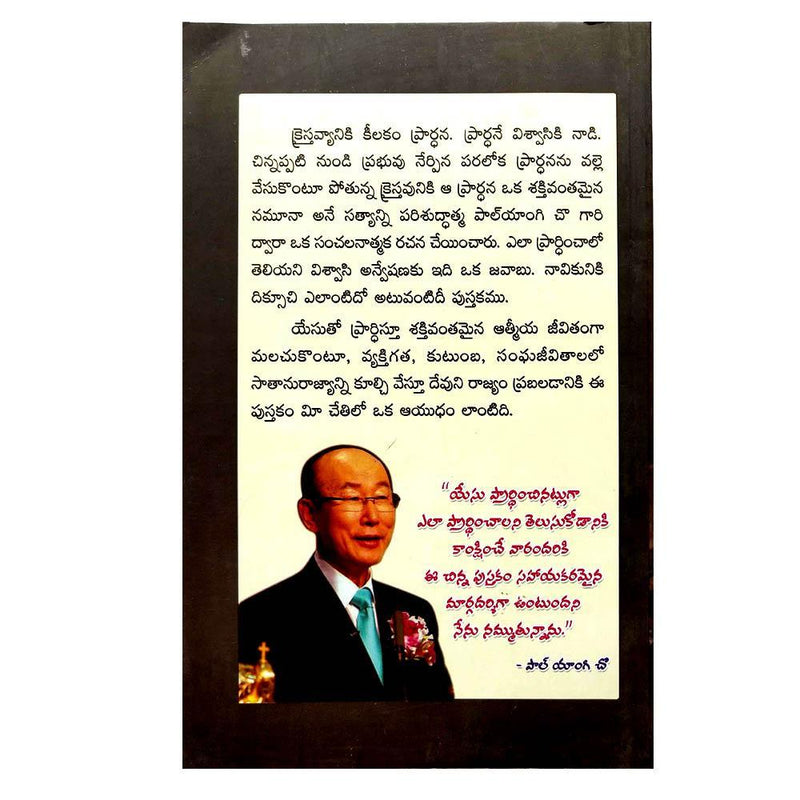 క్రైస్తవ్యానికి కీలకం ప్రార్ధన. ప్రార్ధనే విశ్వాసికి నాడి.
చిన్నప్పటి నుండి ప్రభువు నేర్పిన పరలోక ప్రార్ధనను వల్లె
వేసుకొంటూ పోతున్న క్రైస్తవునికి ఆ ప్రార్ధన ఒక శక్తివంతమైన
నమూనా అనే సత్యాన్ని పరిశుద్ధాత్మ పాల్‌యాంగి చొ గారి
ద్వారా ఒక సంచలనాత్మక రచన చేయించారు. ఎలా ప్రార్ధించాలో
తెలియని విశ్వాసి అన్వేషణకు ఇది ఒక జవాబు. నావికునికి
దిక్సూచి ఎలాంటిదో అటువంటిదీ పుస్తకము.
యేసుతో ప్రార్ధిస్తూ శక్తివంతమైన ఆత్మీయ జీవితంగా
మలచుకొంటూ, వ్యక్తిగత, కుటుంబ, సంఘజీవితాలలో
సాతానురాజ్యాన్ని కూల్చి వేస్తూ దేవుని రాజ్యం ప్రబలడానికి ఈ
పుస్తకం మీ చేతిలో ఒక ఆయుధం లాంటిది.
"యేసు ప్రార్ధించినట్లుగా
ఎలా ప్రార్ధించాలని తెలుసుకోడానికి
కాంక్షించే వారందరికి
ఈ చిన్న పుస్తకం సహాయకరమైన
మార్గదర్శిగా ఉంటుందని
నేను నమ్ముతున్నాను."
- పాల్ యాంగి చొ